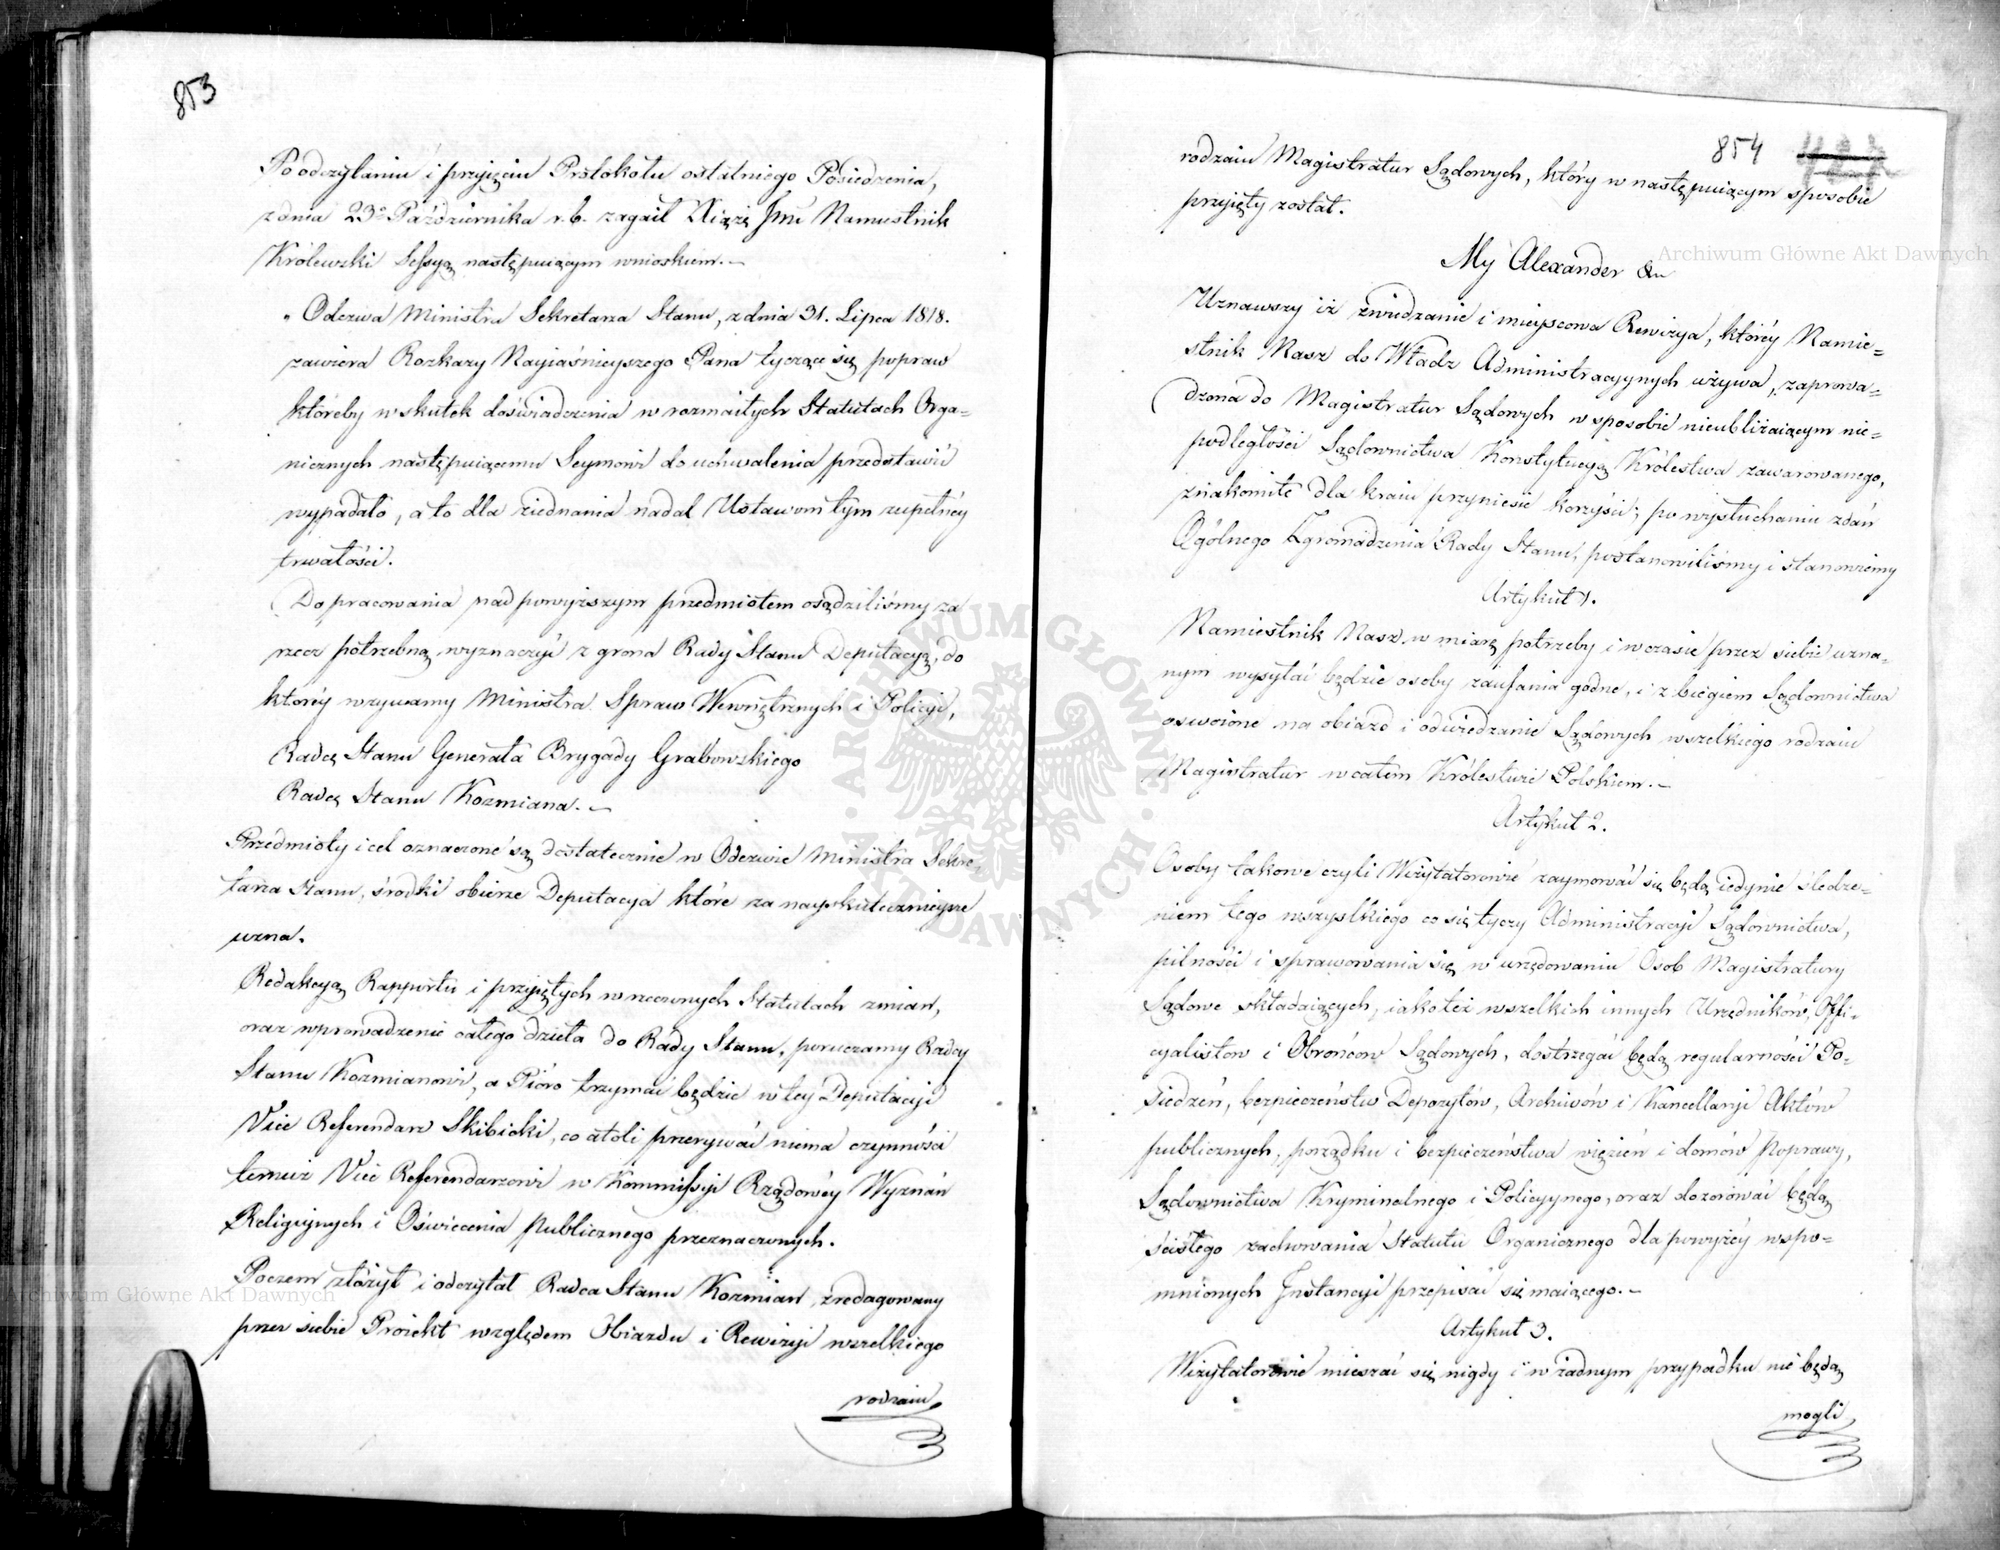 853
Po odczytaniu i przyjęciu Protokołu ostatniego Posiedzenia,
z dnia 23º Października r. b. zagaił Xiążę Jmć Namiestnik
Królewski Sessyą następuiącym wnioskiem.—
„Odezwa Ministra Sekretarza Stanu, z dnia 31. Lipca 1818.
zawiera Rozkazy Nayiaśnieyszego Pana tyczące się popraw
któreby w skutek doświadczenia w rozmaitych Statutach Orga=
nicznych następuiącemu Seymowi do uchwalenia przedstawić
wypadało, a to dla ziednania nadal Ustawom tym zupełnéy
trwałości.
Do pracowania nad powyższym przedmiotem osądziliśmy za
rzecz potrzebną wyznaczyć z grona Rady Stanu Deputacyą, do
któréy wzywamy Ministra Spraw Wewnętrznych i Policyi,
Radcę Stanu Generała Brygady Grabowskiego
Radcę Stanu Kozmiana.—
Przedmioty i cel oznaczone są dostatecznie w Odezwie Ministra Sekre=
tarza Stanu, środki obierze Deputacya które za nayskutecznieysze
uzna.
Redakcyą Rapportu i przyiętych w rzeczonych Statutach zmian,
oraz wprowadzenie całego dzieła do Rady Stanu, poruczamy Radcy
Stanu Kozmianowi, a Pióro trzymać będzie w téy Deputacyi
Vice Referendarz Skibicki, co atoli przerywać niema czynności
temuż Vice Referendarzowi w Kommissyi Rządowéy Wyznań
Religiynych i Oświecenia Publicznego przeznaczonych.
Poczem złożył i odczytał Radca Stanu Kozmian, zredagowany
przez siebie Proiekt względem Obiazdu i Rewizyi wszelkiego
rodzaiu
854
rodzaiu Magistratur Sądowych, który w następuiącym sposobie
przyięty został.
My Alexander &c
Uznawszy iż zwiedzanie i mieyscowa Rewizya, któréy Namie=
stnik Nasz do Władz Administracyynych używa, zaprowa=
dzona do Magistratur Sądowych w sposobie nieubliżaiącym nie=
podległości Sądownictwa Konstytucyą Królestwa zawarowanego,
znakomite dla kraiu przyniesie korzyści; po wysłuchaniu zdań
Ogólnego Zgromadzenia Rady Stanu, postanowiliśmy i stanowiemy
Artykuł 1.
Namiestnik Nasz w miarę potrzeby i w czasie przez siebie uzna=
nym wysyłać będzie osoby zaufania godne, i z biegiem Sądownictwa
oswoione na obiazd i odwiedzanie Sądowych wszelkiego rodzaiu
Magistratur w całem Królestwie Polskiem.—
Artykuł 2.
Osoby takowe czyli Wizytatorowie zaymować się będą iedynie śledze=
niem tego wszystkiego co się tyczy Administracyi Sądownictwa,
pilności i sprawowania się w urzędowaniu Osob Magistratury
Sądowe składaiących, iako też wszelkich innych Urzędników, Offi=
cyalistów i Obrońców Sądowych, dostrzegać będą regularności Po=
siedzeń, bezpieczeństw Depozytów, Archiwów i Kancellaryi Aktów
publicznych, porządku i bezpieczeństwa więzień i domów Poprawy,
Sądownictwa Kryminalnego i Policyynego, oraz dozorować będą
ścisłego zachowania Statutu Organicznego dla powyżéy wspo=
mnionych Instancyi przepisać się maiącego.—
Artykuł 3.
Wizytatorowie mieszać się nigdy i w żadnym przypadku nie będą
mogli
Archiwum Główne Akt Dawnych
Archiwum Główne Akt Dawnych
ARCHIWUM GŁÓWNE AKT DAWNYCH